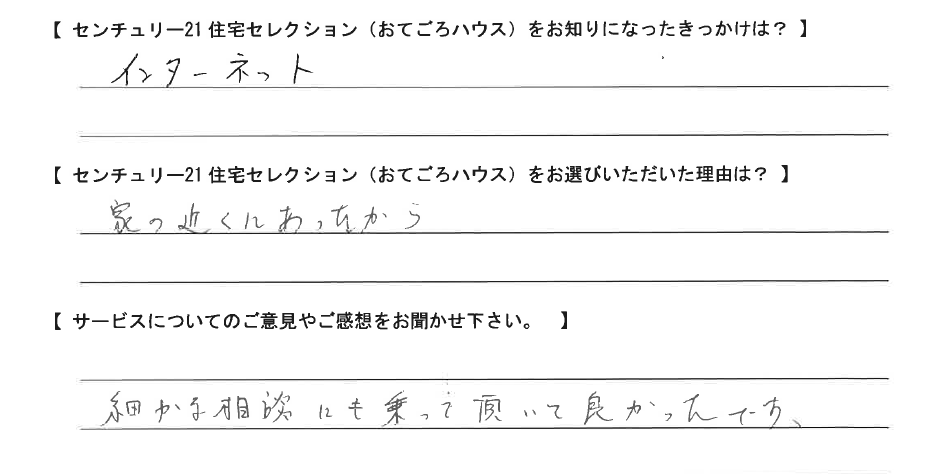 【 センチュリー21 住宅セレクション（おてごろハウス）をお知りになったきっかけは？ 】
インターネット
【 センチュリー21 住宅セレクション（おてごろハウス）をお選びいただいた理由は？ 】
家の近くにあったから
【 サービスについてのご意見やご感想をお聞かせ下さい。 】
細かな相談にも乗って頂いて良かったです、